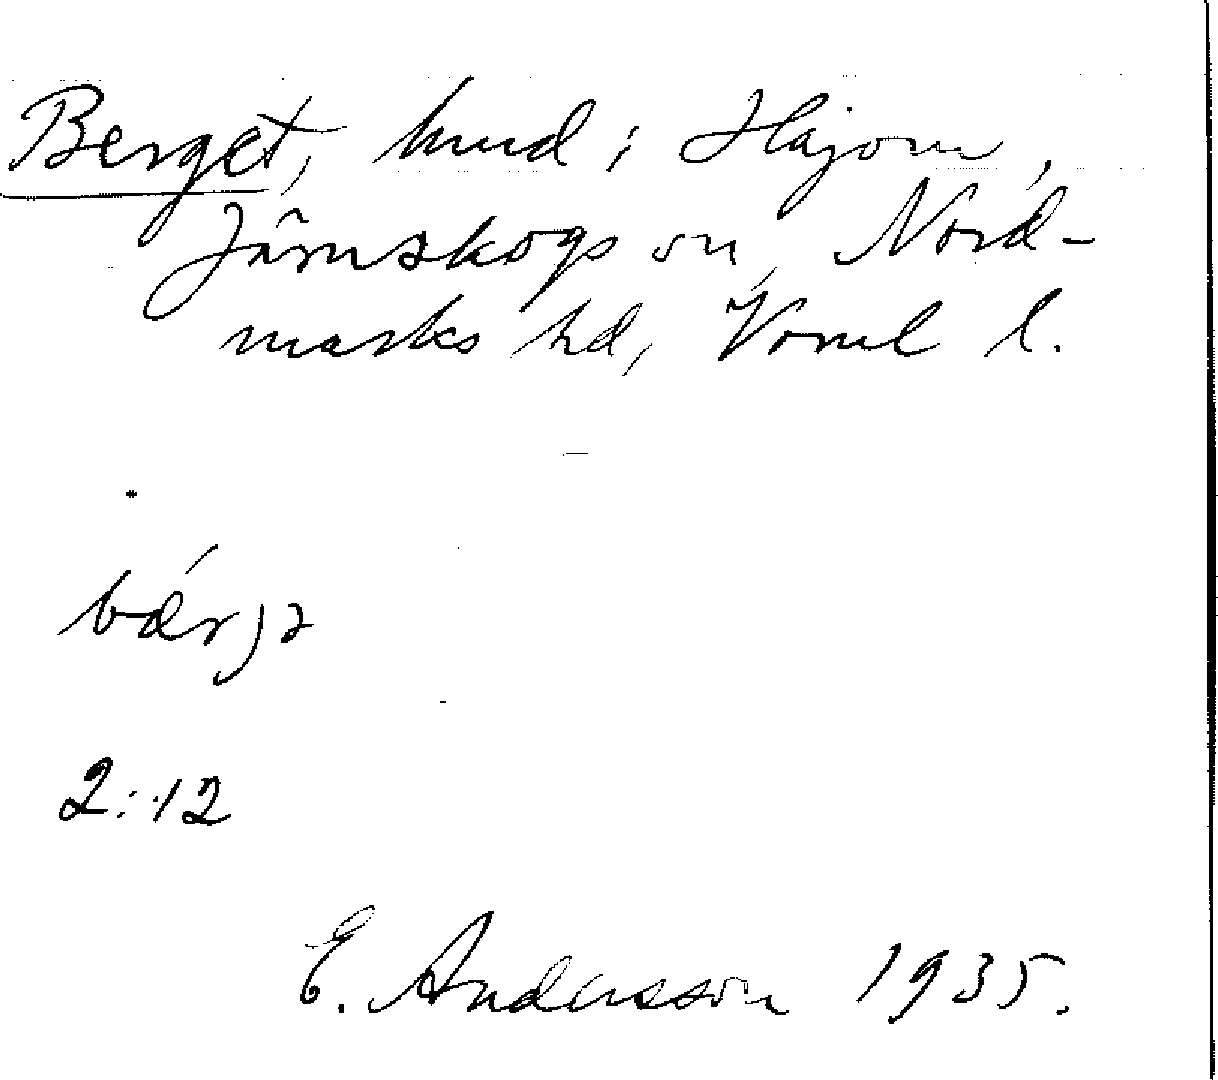 Berget, hmd i Håjom,
Järnskogs sn, Nord-
marks hd, Värml l.
bǽrjə
2:12
E. Andersson 1935.